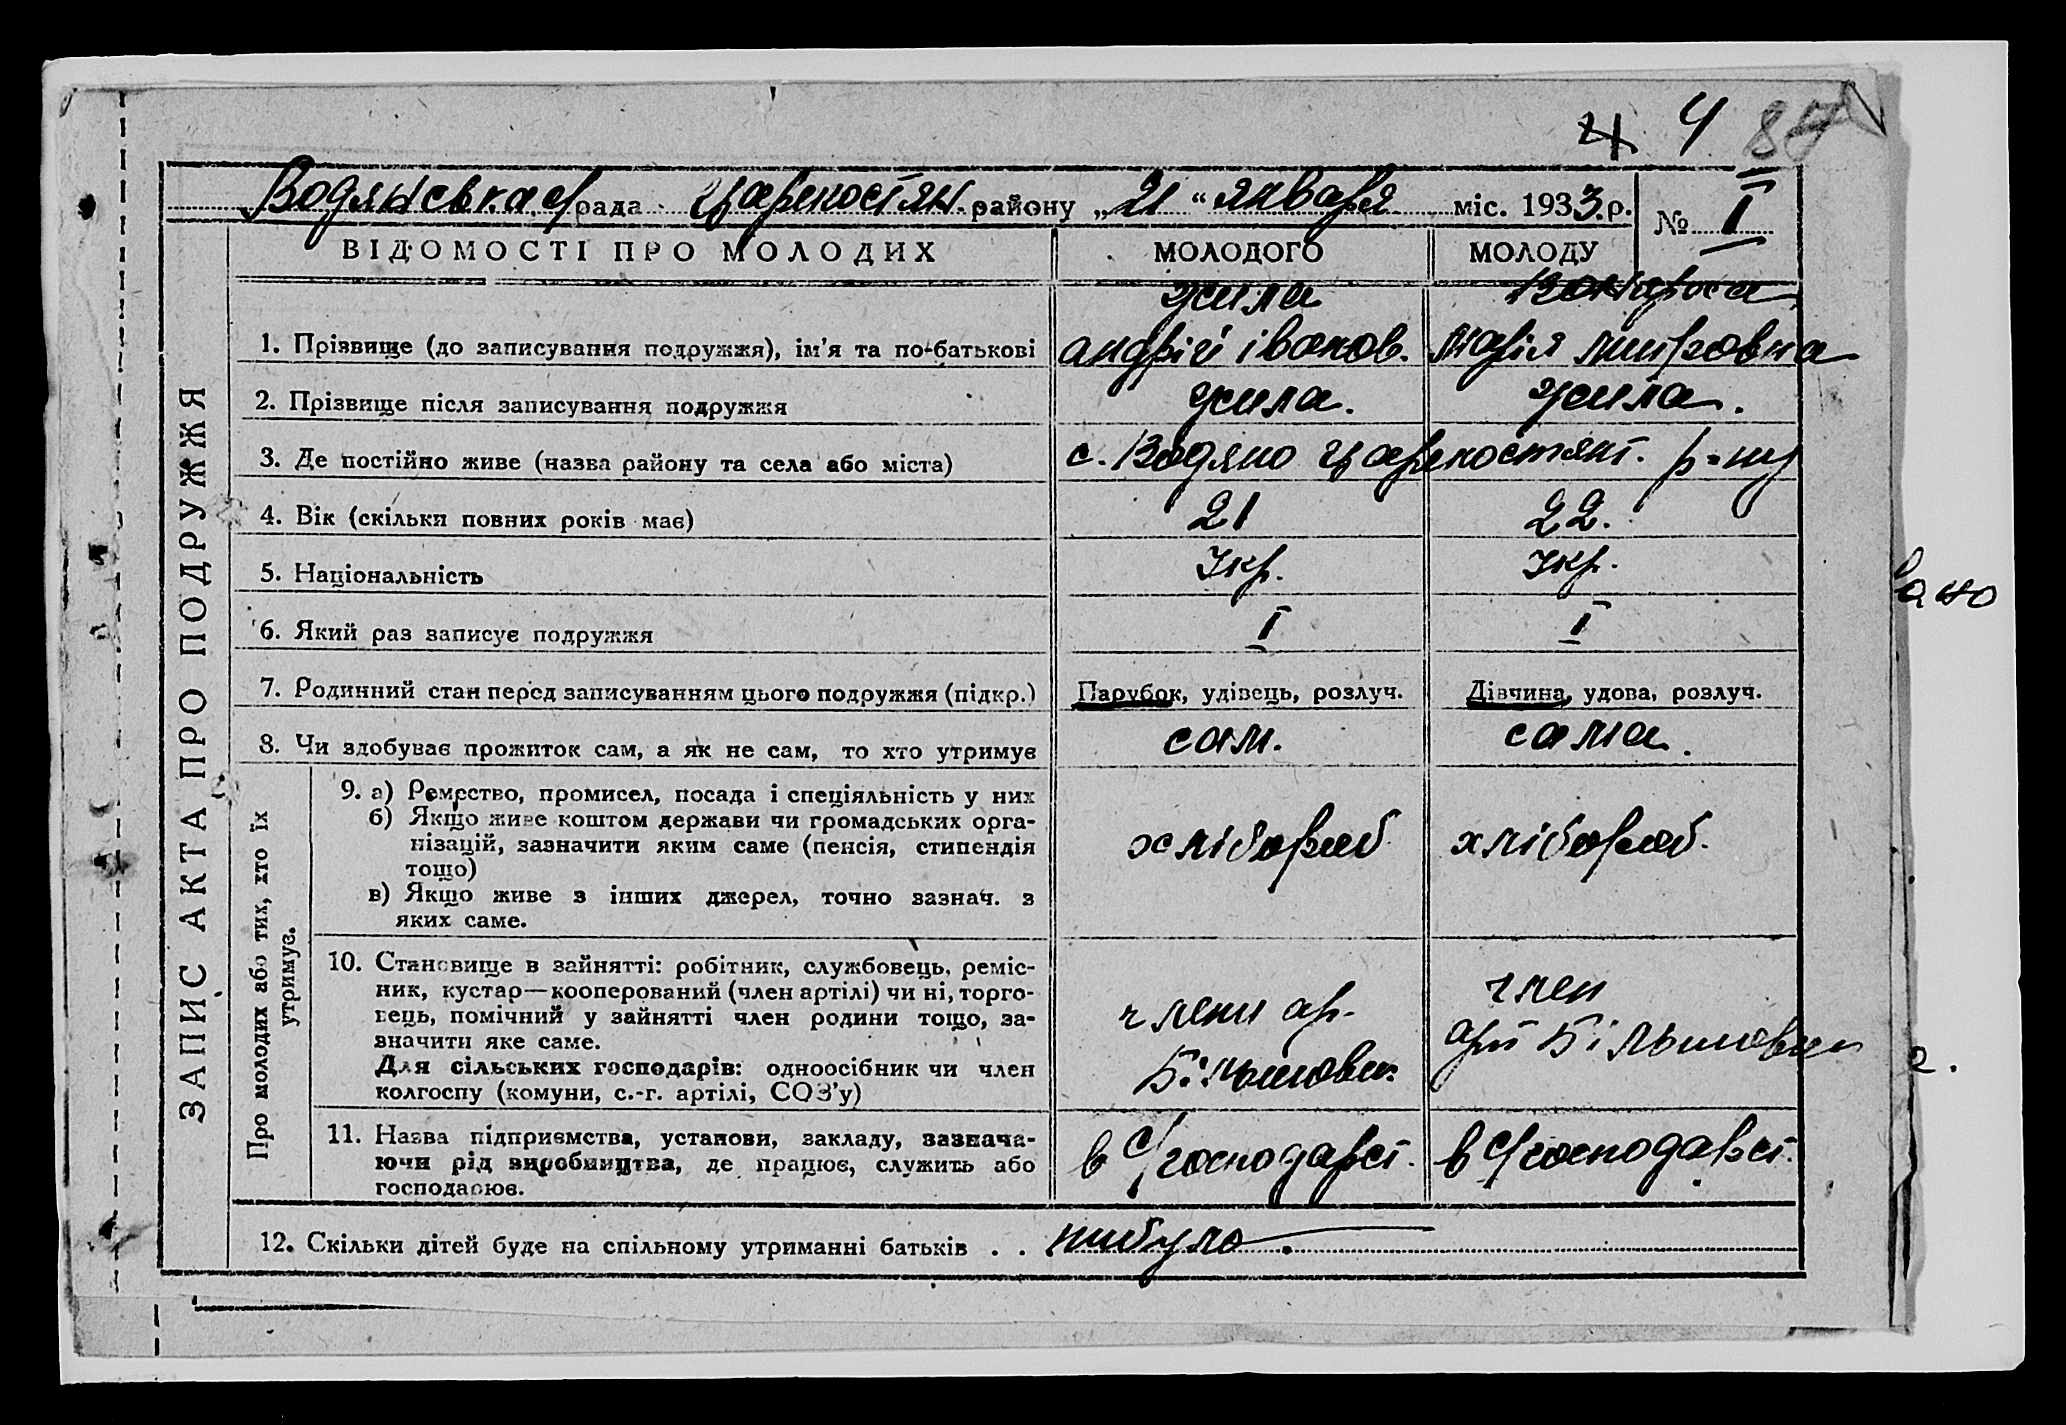 4 4 84
Водянська с/рада Цареностян. району „21“ января міс. 1933.р. № I
ВІДОМОСТІ ПРО МОЛОДИХ МОЛОДОГО МОЛОДУ
жила
1. Прізвище (до записування подружжя), ім'я та по-батькові андрій іванов. марія
2. Прізвище після записування подружжя жила. жила.
3. Де постійно живе (назва району та села або міста) с. Водяно р-ну
4. Вік (скільки повних років має) 21 22.
5. Національність Укр. Укр.
6. Який раз записує подружжя I I
7. Родинний стан перед записуванням цього подружжя (підкр.) Парубок, удівець, розлуч. Дівчина, удова, розлуч.
8. Чи здобуває прожиток сам, а як не сам, то хто утримує сам. сама.
ЗАПИС АКТА ПРО ПОДРУЖЖЯ
Про молодих або тих, хто їх
утримує.
9. а) Ремество, промисел, посада і спеціяльність у них
б) Якщо живе коштом держави чи громадських орга-
нізацій, зазначити яким саме (пенсія, стипендія
тощо)
в) Якщо живе з інших джерел, точно зазнач. з
яких саме.
хлібороб хлібороб.
10. Становище в зайнятті: робітник, службовець, реміс-
ник, кустар—кооперований (член артілі) чи ні, торго-
вець, помічний у зайнятті член родини тощо, за-
значити яке саме.
Для сільських господарів: одноосібник чи член
колгоспу (комуни, с.-г. артілі, СОЗ'у)
члени ар.
Більшовик
член
арт Більшовик
11. Назва підприємства, установи, закладу, зазнача-
ючи рід виробництва, де працює, служить або
господарює.
в С/господарст. в С/господарст.
12. Скільки дітей буде на спільному утриманні батьків . . нибуло.